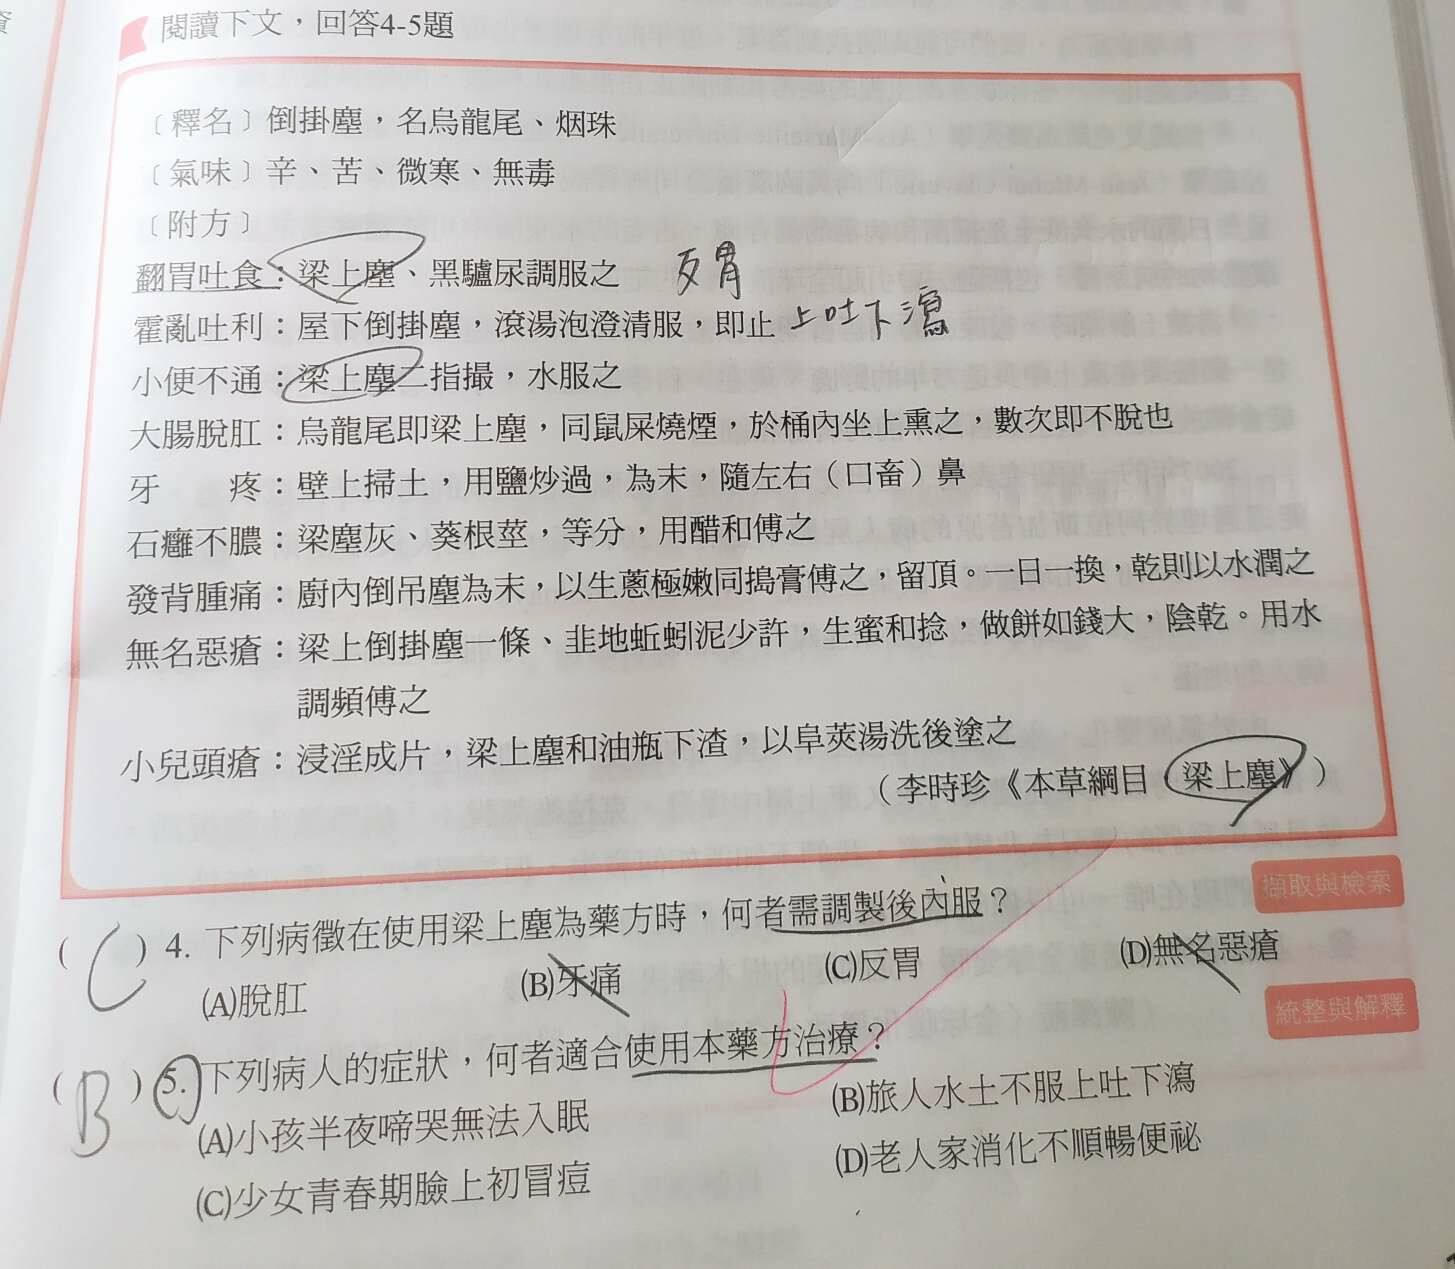 閱讀下文，回答4-5題
〔釋名〕倒掛塵，名烏龍尾、烟珠
〔氣味〕辛、苦、微寒、無毒
〔附方〕
翻胃吐食：梁上塵、黑驢尿調服之 反胃
霍亂吐利：屋下倒掛塵，滾湯泡澄清服，即止 上吐下瀉
小便不通：梁上塵二指撮，水服之
大腸脫肛：烏龍尾即梁上塵，同鼠屎燒煙，於桶內坐上熏之，數次即不脫也
牙　　疼：壁上掃土，用鹽炒過，為末，隨左右（口畜）鼻
石癰不膿：梁塵灰、葵根莖，等分，用醋和傅之
發背腫痛：廚內倒吊塵為末，以生蔥極嫩同搗膏傅之，留頂。一日一換，乾則以水潤之
無名惡瘡：梁上倒掛塵一條、韭地蚯蚓泥少許，生蜜和捻，做餅如錢大，陰乾。用水
調頻傅之
小兒頭瘡：浸淫成片，梁上塵和油瓶下渣，以皁莢湯洗後塗之
（李時珍《本草綱目．梁上塵》）
擷取與檢索
( C ) 4. 下列病徵在使用梁上塵為藥方時，何者需調製後內服？
(A)脫肛 (B)牙痛 (C)反胃 (D)無名惡瘡
統整與解釋
( B ) 5. 下列病人的症狀，何者適合使用本藥方治療？
(A)小孩半夜啼哭無法入眠 (B)旅人水土不服上吐下瀉
(C)少女青春期臉上初冒痘 (D)老人家消化不順暢便祕